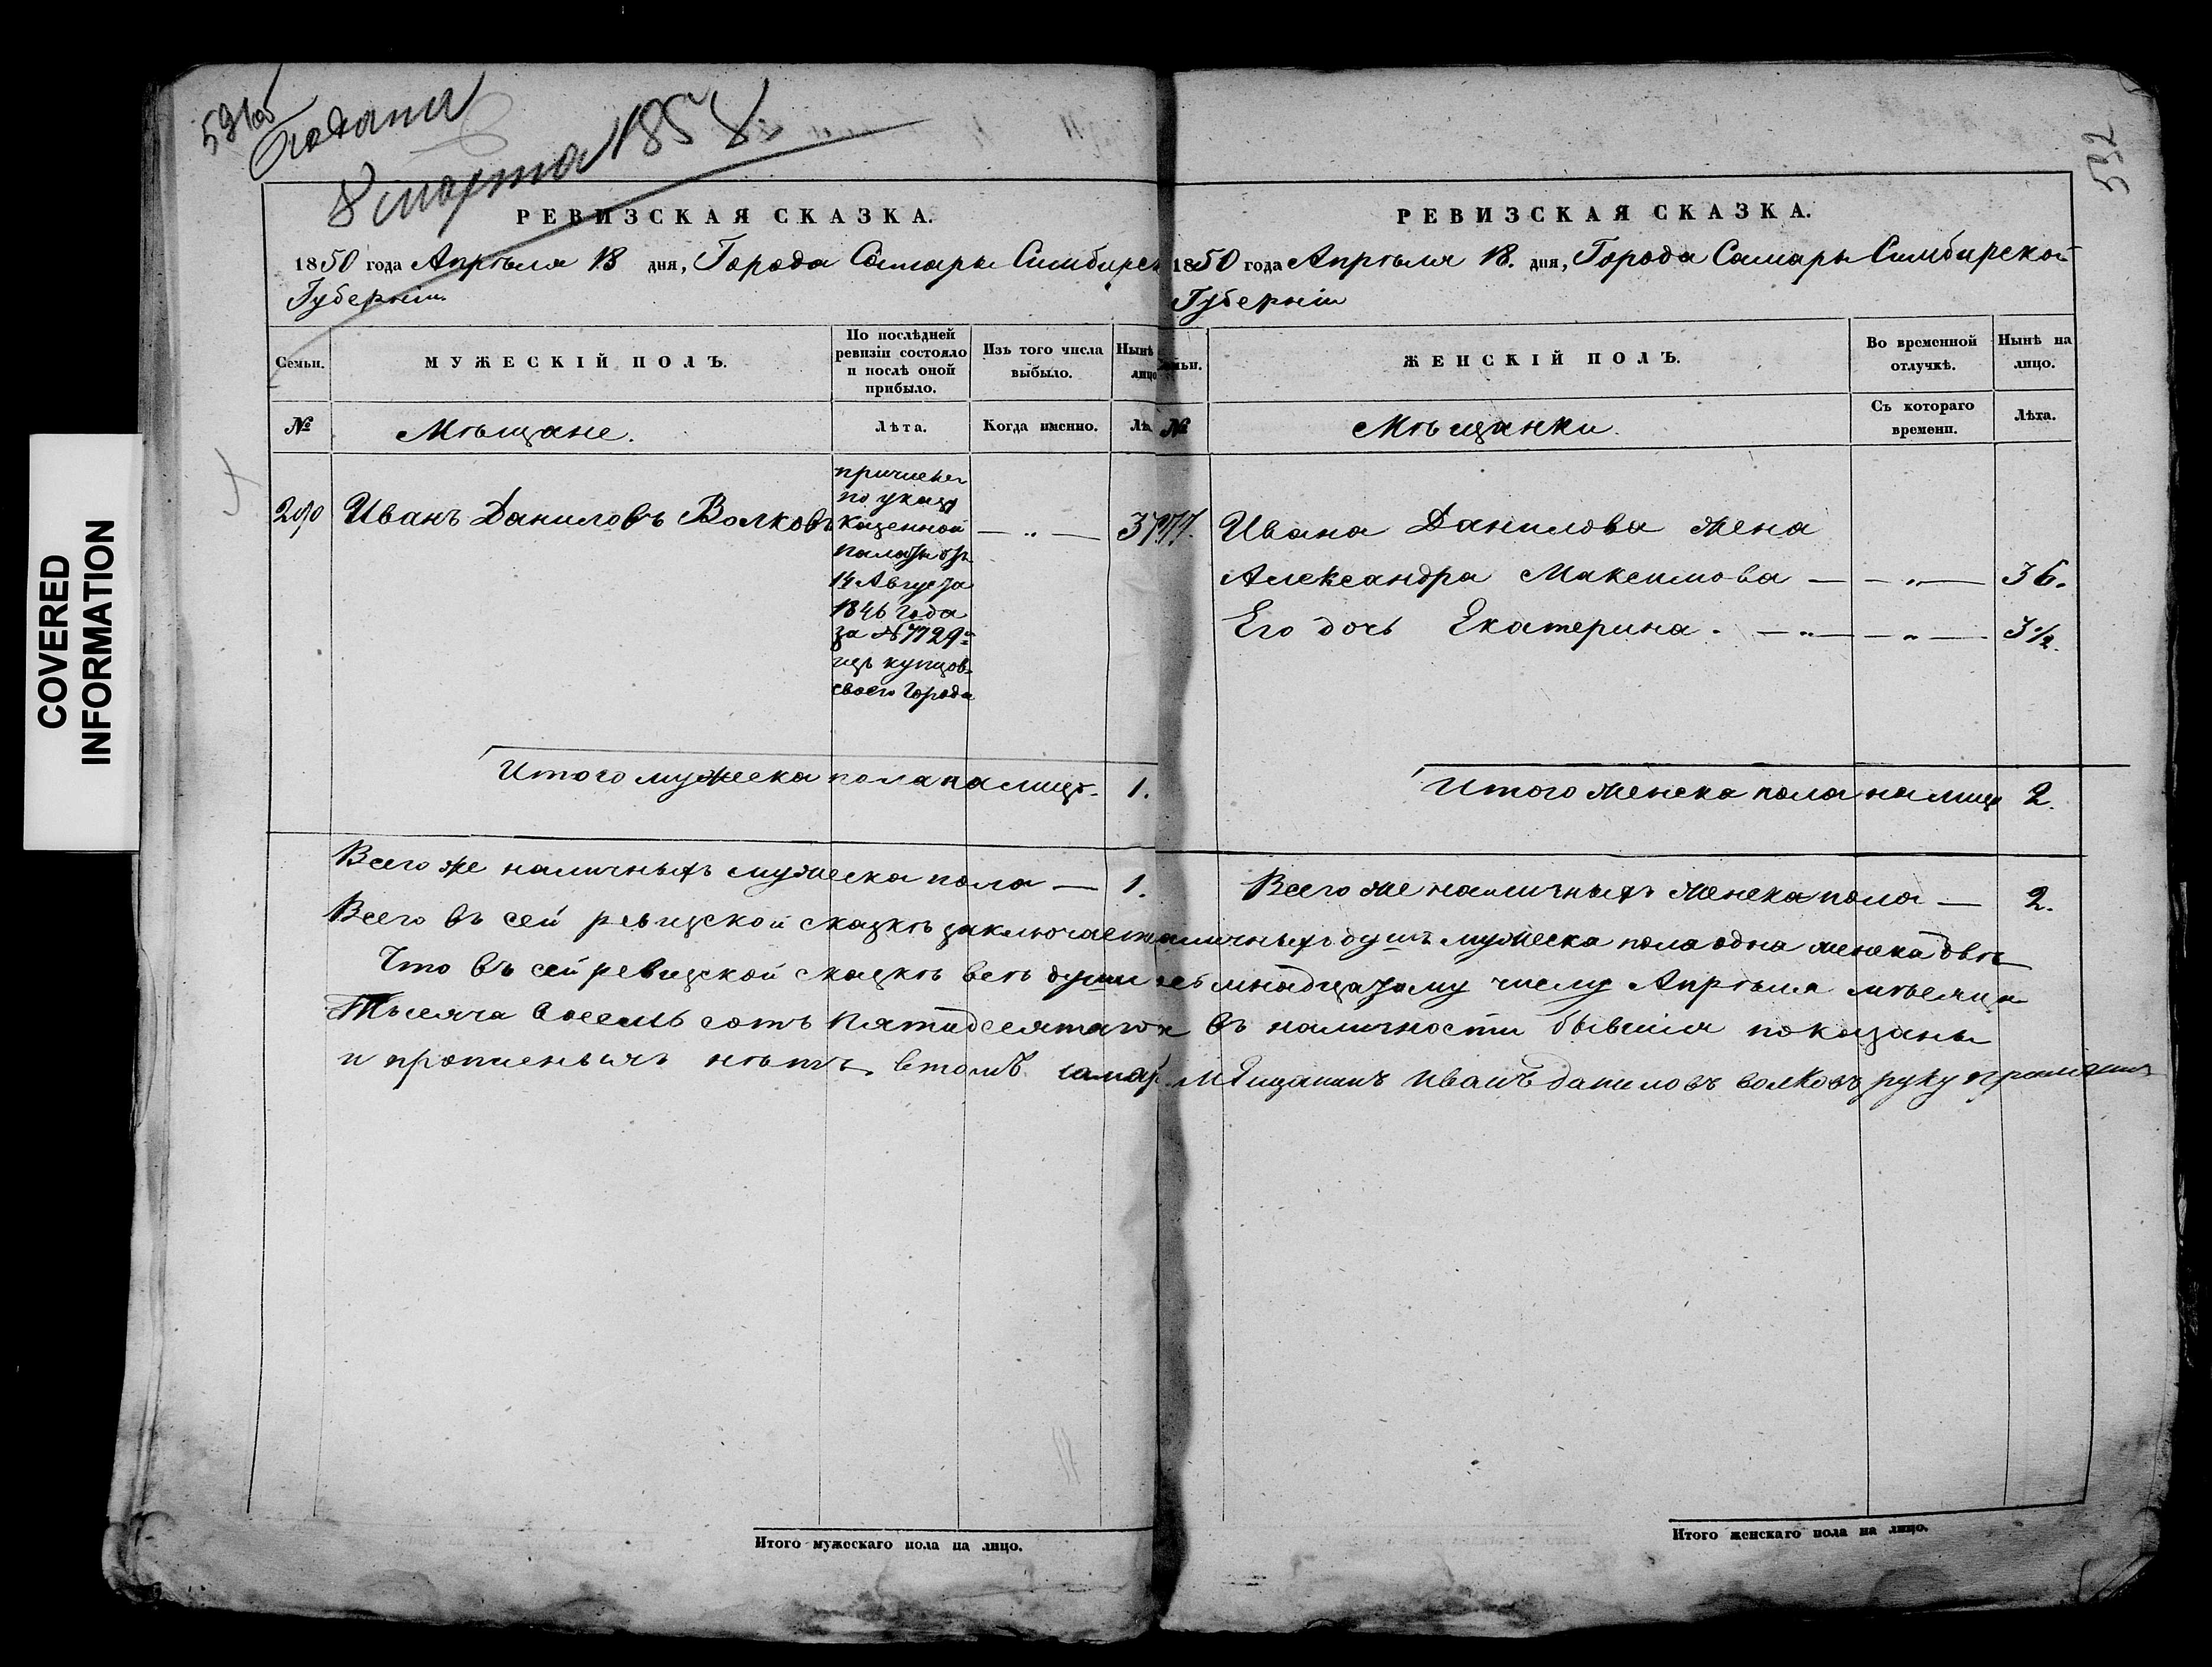 COVERED
INFORMATION
531об
Подана
8 марта 1858.
РЕВИЗСКАЯ СКАЗКА.
1850 года Апрѣля 18 дня, Города Самары Симбирск
Губерніи
Семьи.
МУЖЕСКІЙ ПОЛЪ.
По послѣдней
ревизіи состояло
и послѣ оной
прибыло.
Изъ того числа
выбыло.
Нынѣ
лицо
№
Мѣщане.
Лѣта.
Когда именно.
Лѣ
290
Иванъ Даниловъ Волковъ
причислен
по указу
казенной
палаты отъ
14 Августа
1846 года
за № 7729м
изъ купцов
своего города
— „ —
37
Итого мужеска пола на лицо. 1.
Всего же наличныхъ мужеска пола — 1.
532
РЕВИЗСКАЯ СКАЗКА.
1850 года Апрѣля 18. дня, Города Самары Симбирской
Губерніи
ЖЕНСКІЙ ПОЛЪ.
Во временной
отлучкѣ.
Нынѣ на
лицо.
№
Мѣщанки.
Съ котораго
времени.
Лѣта.
Ивана Данилова жена
Александра Максимова — — „ — 36.
Его дочь Екатерина. — „ — — „ — 3½.
Итого женска пола на лицо 2.
Всего же наличныхъ женска пола — 2.
Всего въ сей ревизской сказкѣ заключает наличныхъ душъ мужеска пола одна женска двѣ
Что въ сей ревизской сказкѣ всѣ души мнадцатому числу Апрѣля мѣсяца
Тысяча восемь сотъ пятидесятаго въ наличности бывшія показаны
и прописныхъ нѣтъ втомъ самар. мѣщанинъ иванъ даниловъ волковъ руку приложилъ
Итого мужескаго пола на лицо.
Итого женскаго пола на лицо.